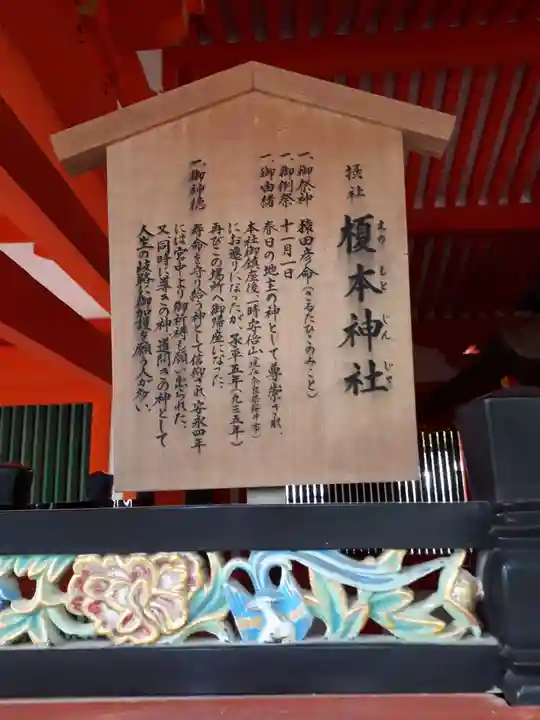 摂社
榎本神社
えの もと じん じゃ
一、御祭神 猿田彦命（さるたひこのみこと）
一、御例祭 十一月一日
一、御由緒 春日の地主の神として尊崇され、
本社御鎮座後一時安倍山（現在奈良県桜井市）
にお遷りになったが、承平五年（九三五年）
再びこの場所へ御帰座になった
一、御神徳 寿命を守り給う神として信仰され安永四年
には宮中より御祈祷も願い出られた、
又、同時に導きの神、道開きの神として
人生の岐路に御加護を願う人が多い、